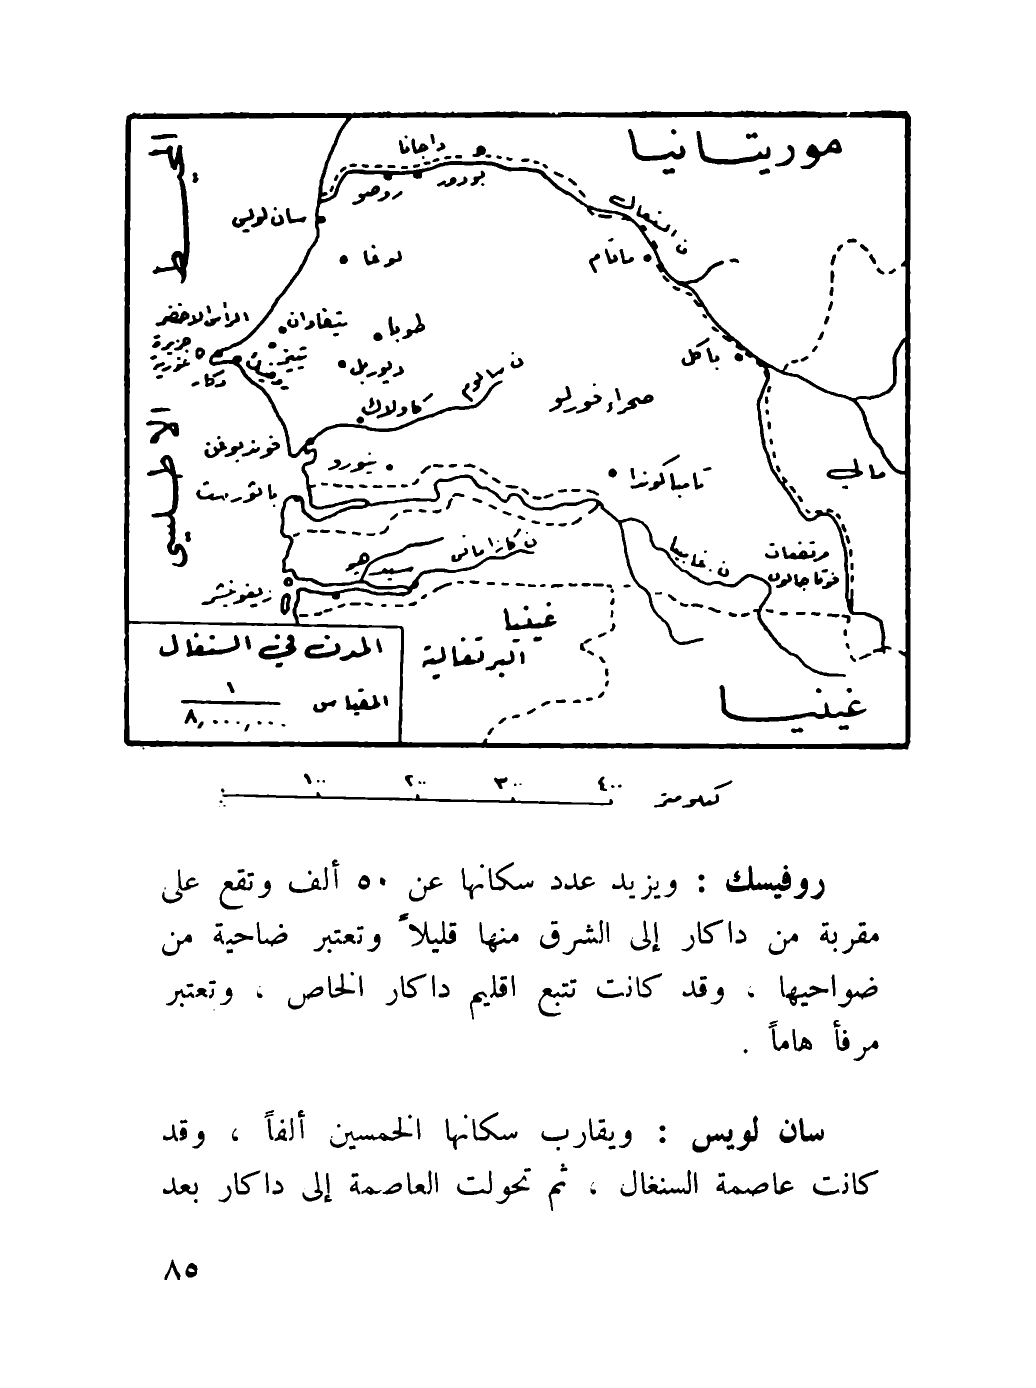 موريتانيا
داجانا
بودور
روصو
سان لويس
ن السنغال
ماتام
لوغا
المحيط
الاطلسي
الرأس الاخضر
تيفادان
طوبا
جزيرة
غورية
دكار
ديوربل
ن سالوم
كاولاك
باكل
صحراء فورلو
مالي
نيورو
تامباكوندا
باثورست
ن كازامانس
ن. غامبيا
مرتفعات
فوتا جالون
زيغونشور
غينيا
البرتغالية
غينيا
المدن في السنغال
المقياس ١ / ٨,٠٠٠,٠٠٠
١٠٠ ٢٠٠ ٣٠٠ ٤٠٠ كيلو متر
روفيسك : ويزيد عدد سكانها عن ٥٠ ألف وتقع على
مقربة من داكار إلى الشرق منها قليلاً وتعتبر ضاحية من
ضواحيها ، وقد كانت تتبع اقليم داكار الخاص ، وتعتبر
مرفأ هاماً .
سان لويس : ويقارب سكانها الخمسين ألفاً ، وقد
كانت عاصمة السنغال ، ثم تحولت العاصمة إلى داكار بعد
٨٥